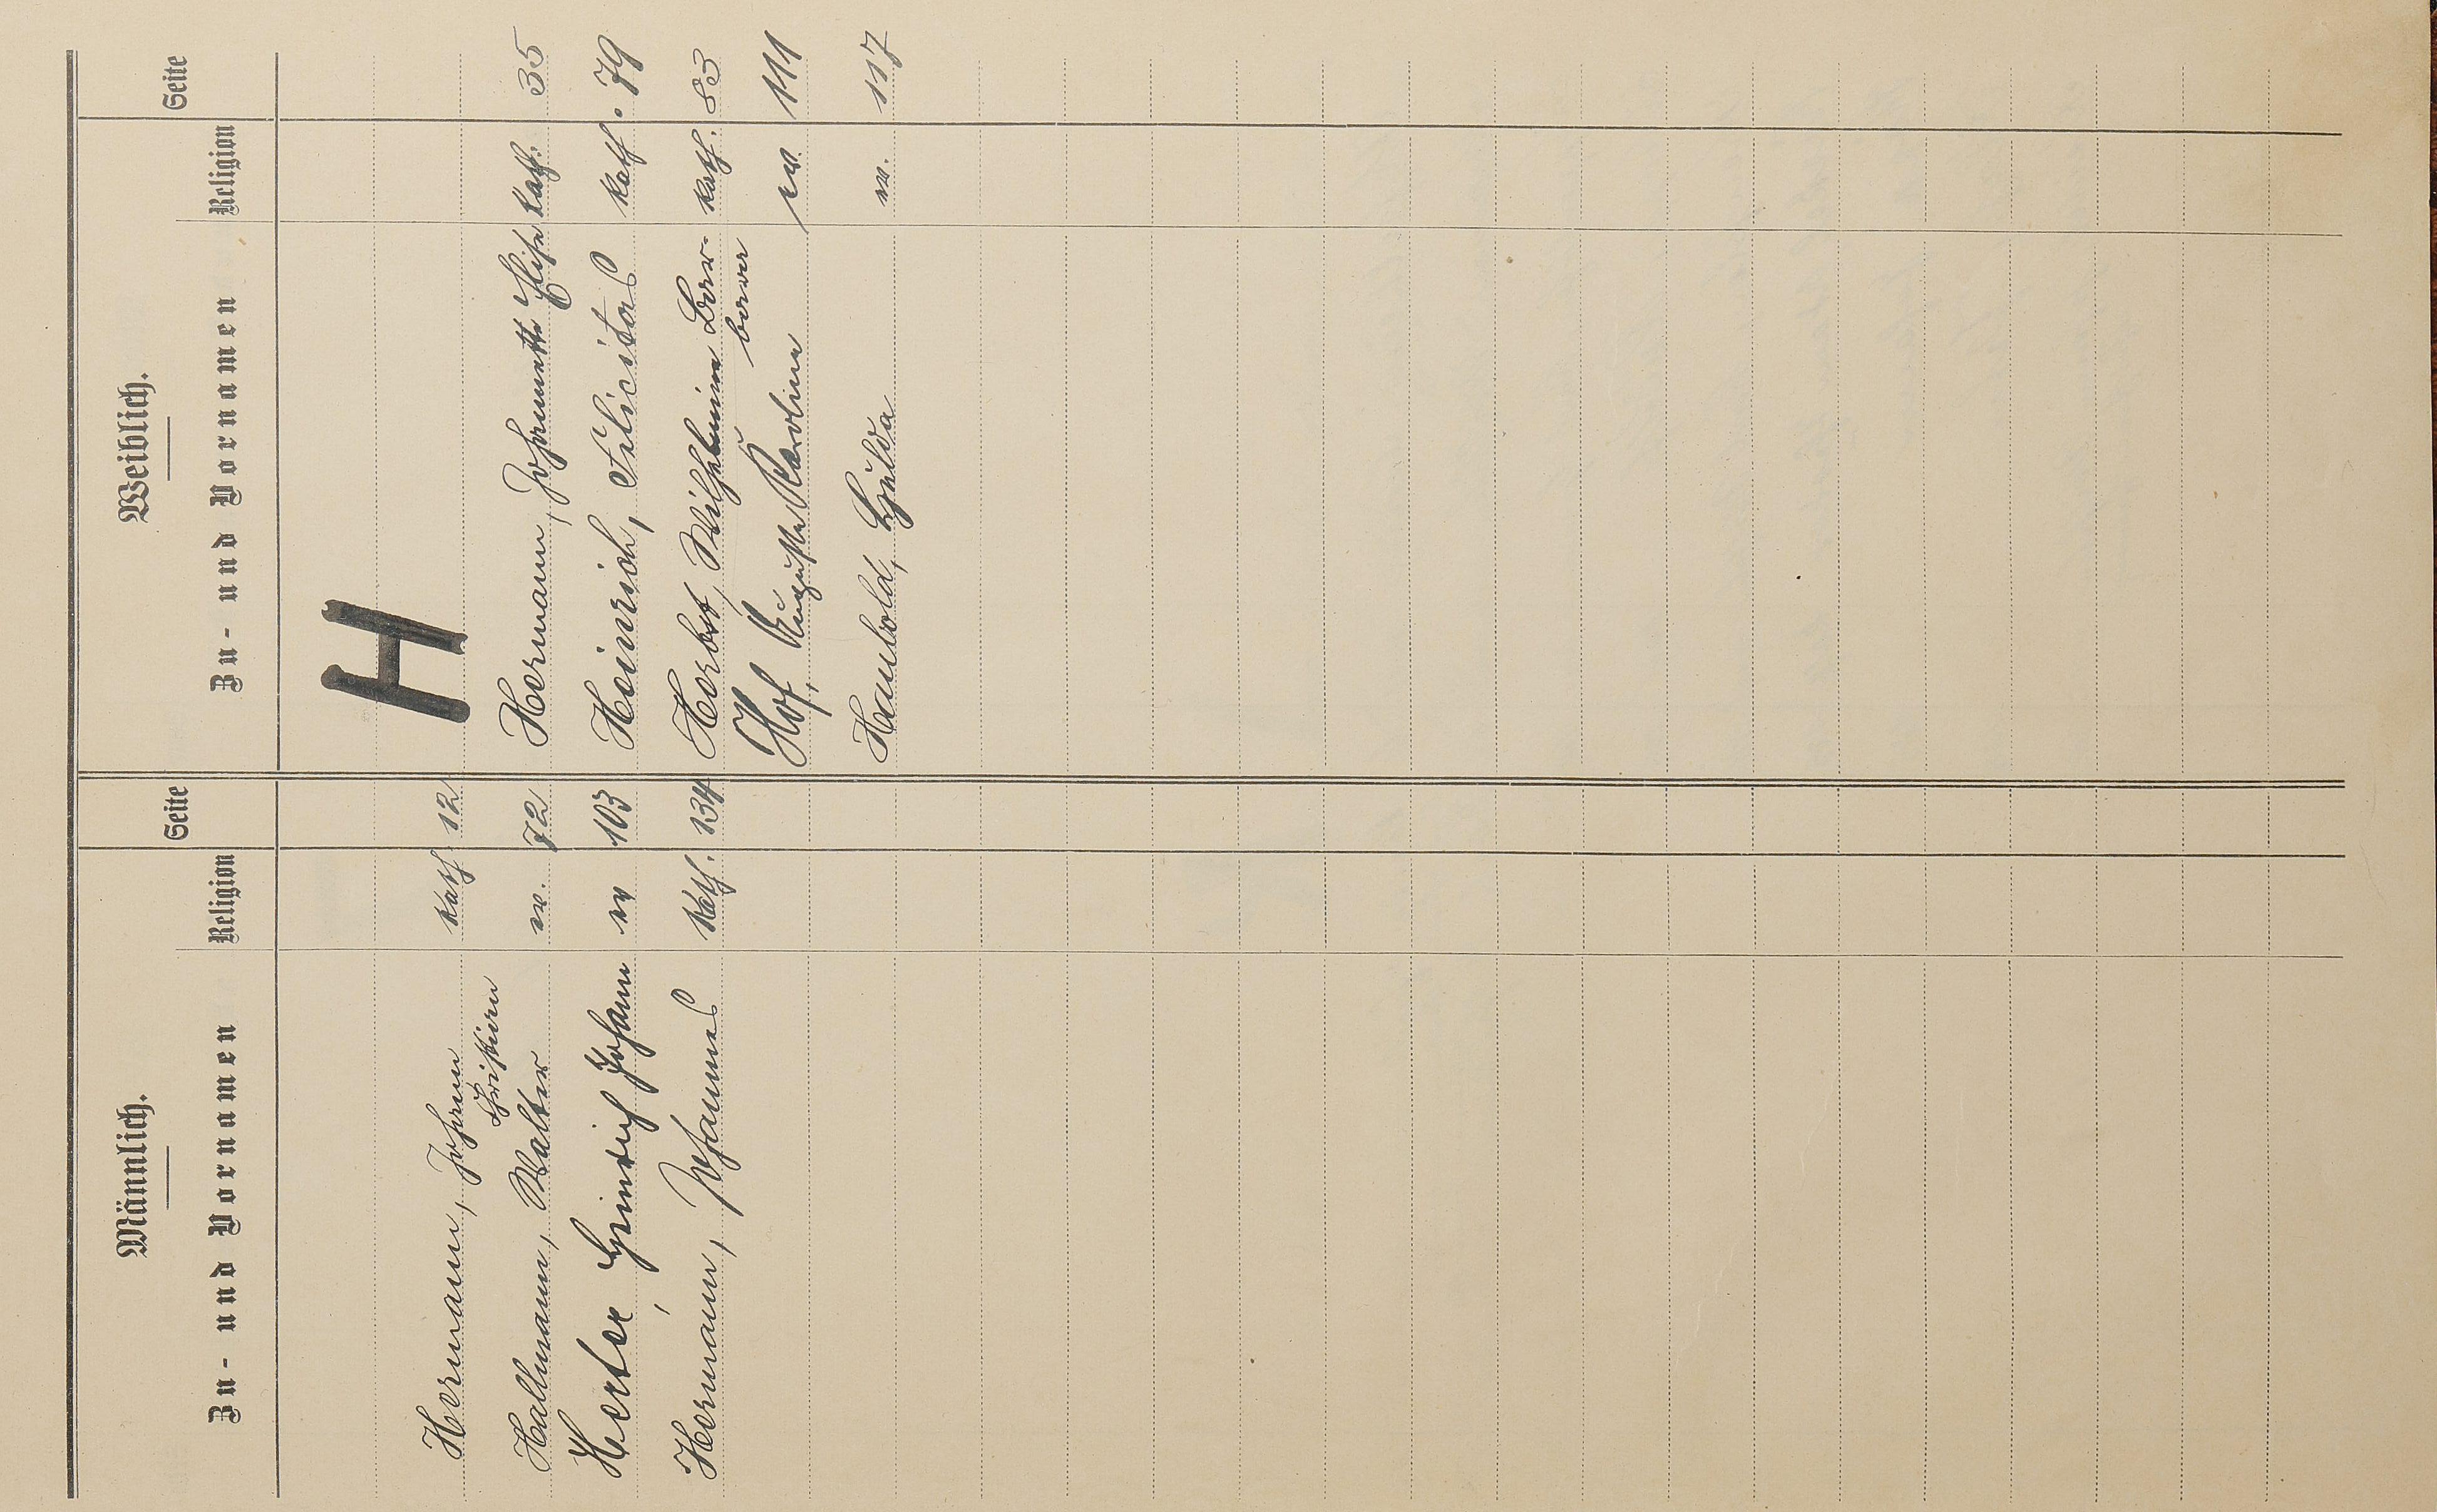 Männlich.
Zu- und Vornamen Religion Seite
Hermann, Johann kath 12
Christian
Hallmann, Walter ev. 72
Herter, Heinrich Johann ev 103
Hermann, Johannes kath. 134
Weiblich.
Zu- und Vornamen Religion Seite
H
Hermann, Johannette Elise kath. 35
Heinrich, Felicitas kath. 79
Herbst, Wilhelmine Bar- kath. 83
bara
Hof, Auguste Karoline ev. 111
Haubold, Hulda ev. 117